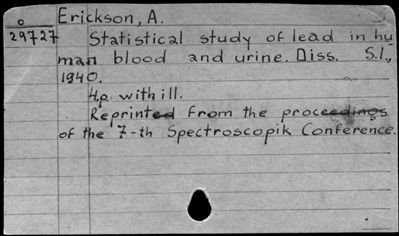 o Erickson, A.
29727 Statistical study of lead in hu
man blood and urine. Diss. S.l.,
1940.
4p. with ill.
Reprinted from the proceedings
of the 7-th Spectroscopik Conference.